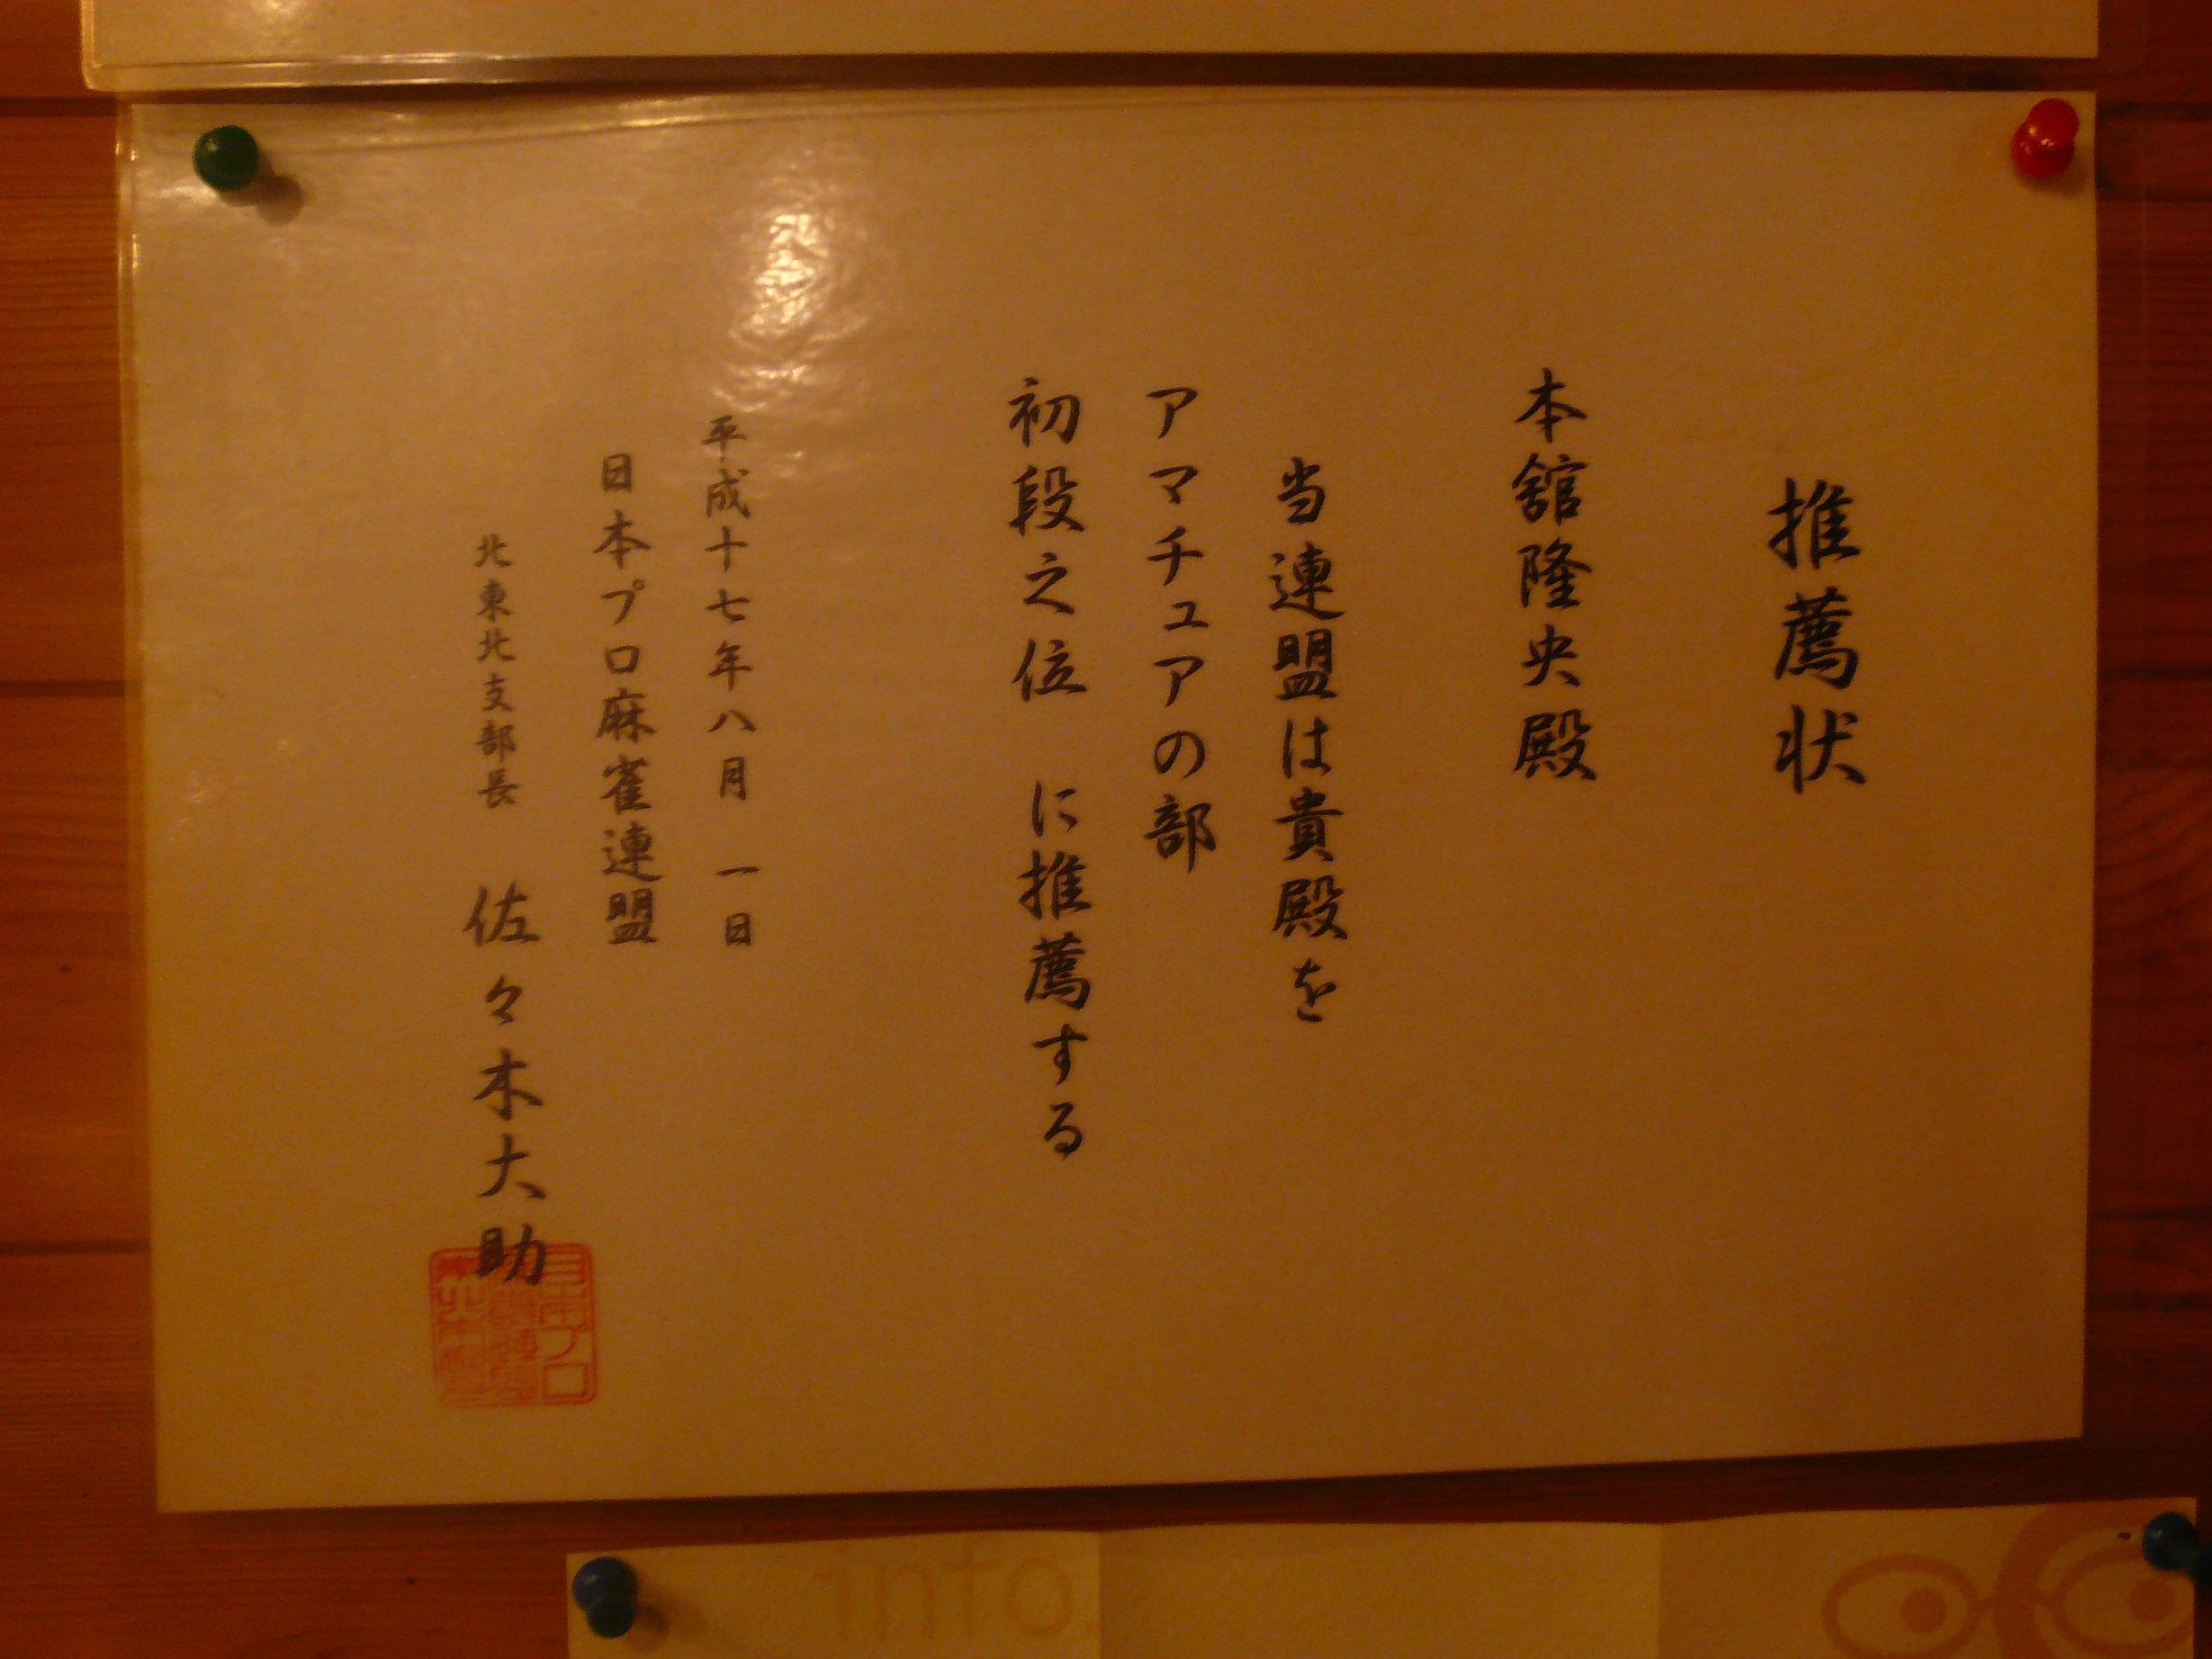 推薦状
本舘隆央殿
当連盟は貴殿を
アマチュアの部
初段之位 に推薦する
平成十七年八月 一日
日本プロ麻雀連盟
北東北支部長 佐々木大助
日本プロ
info.